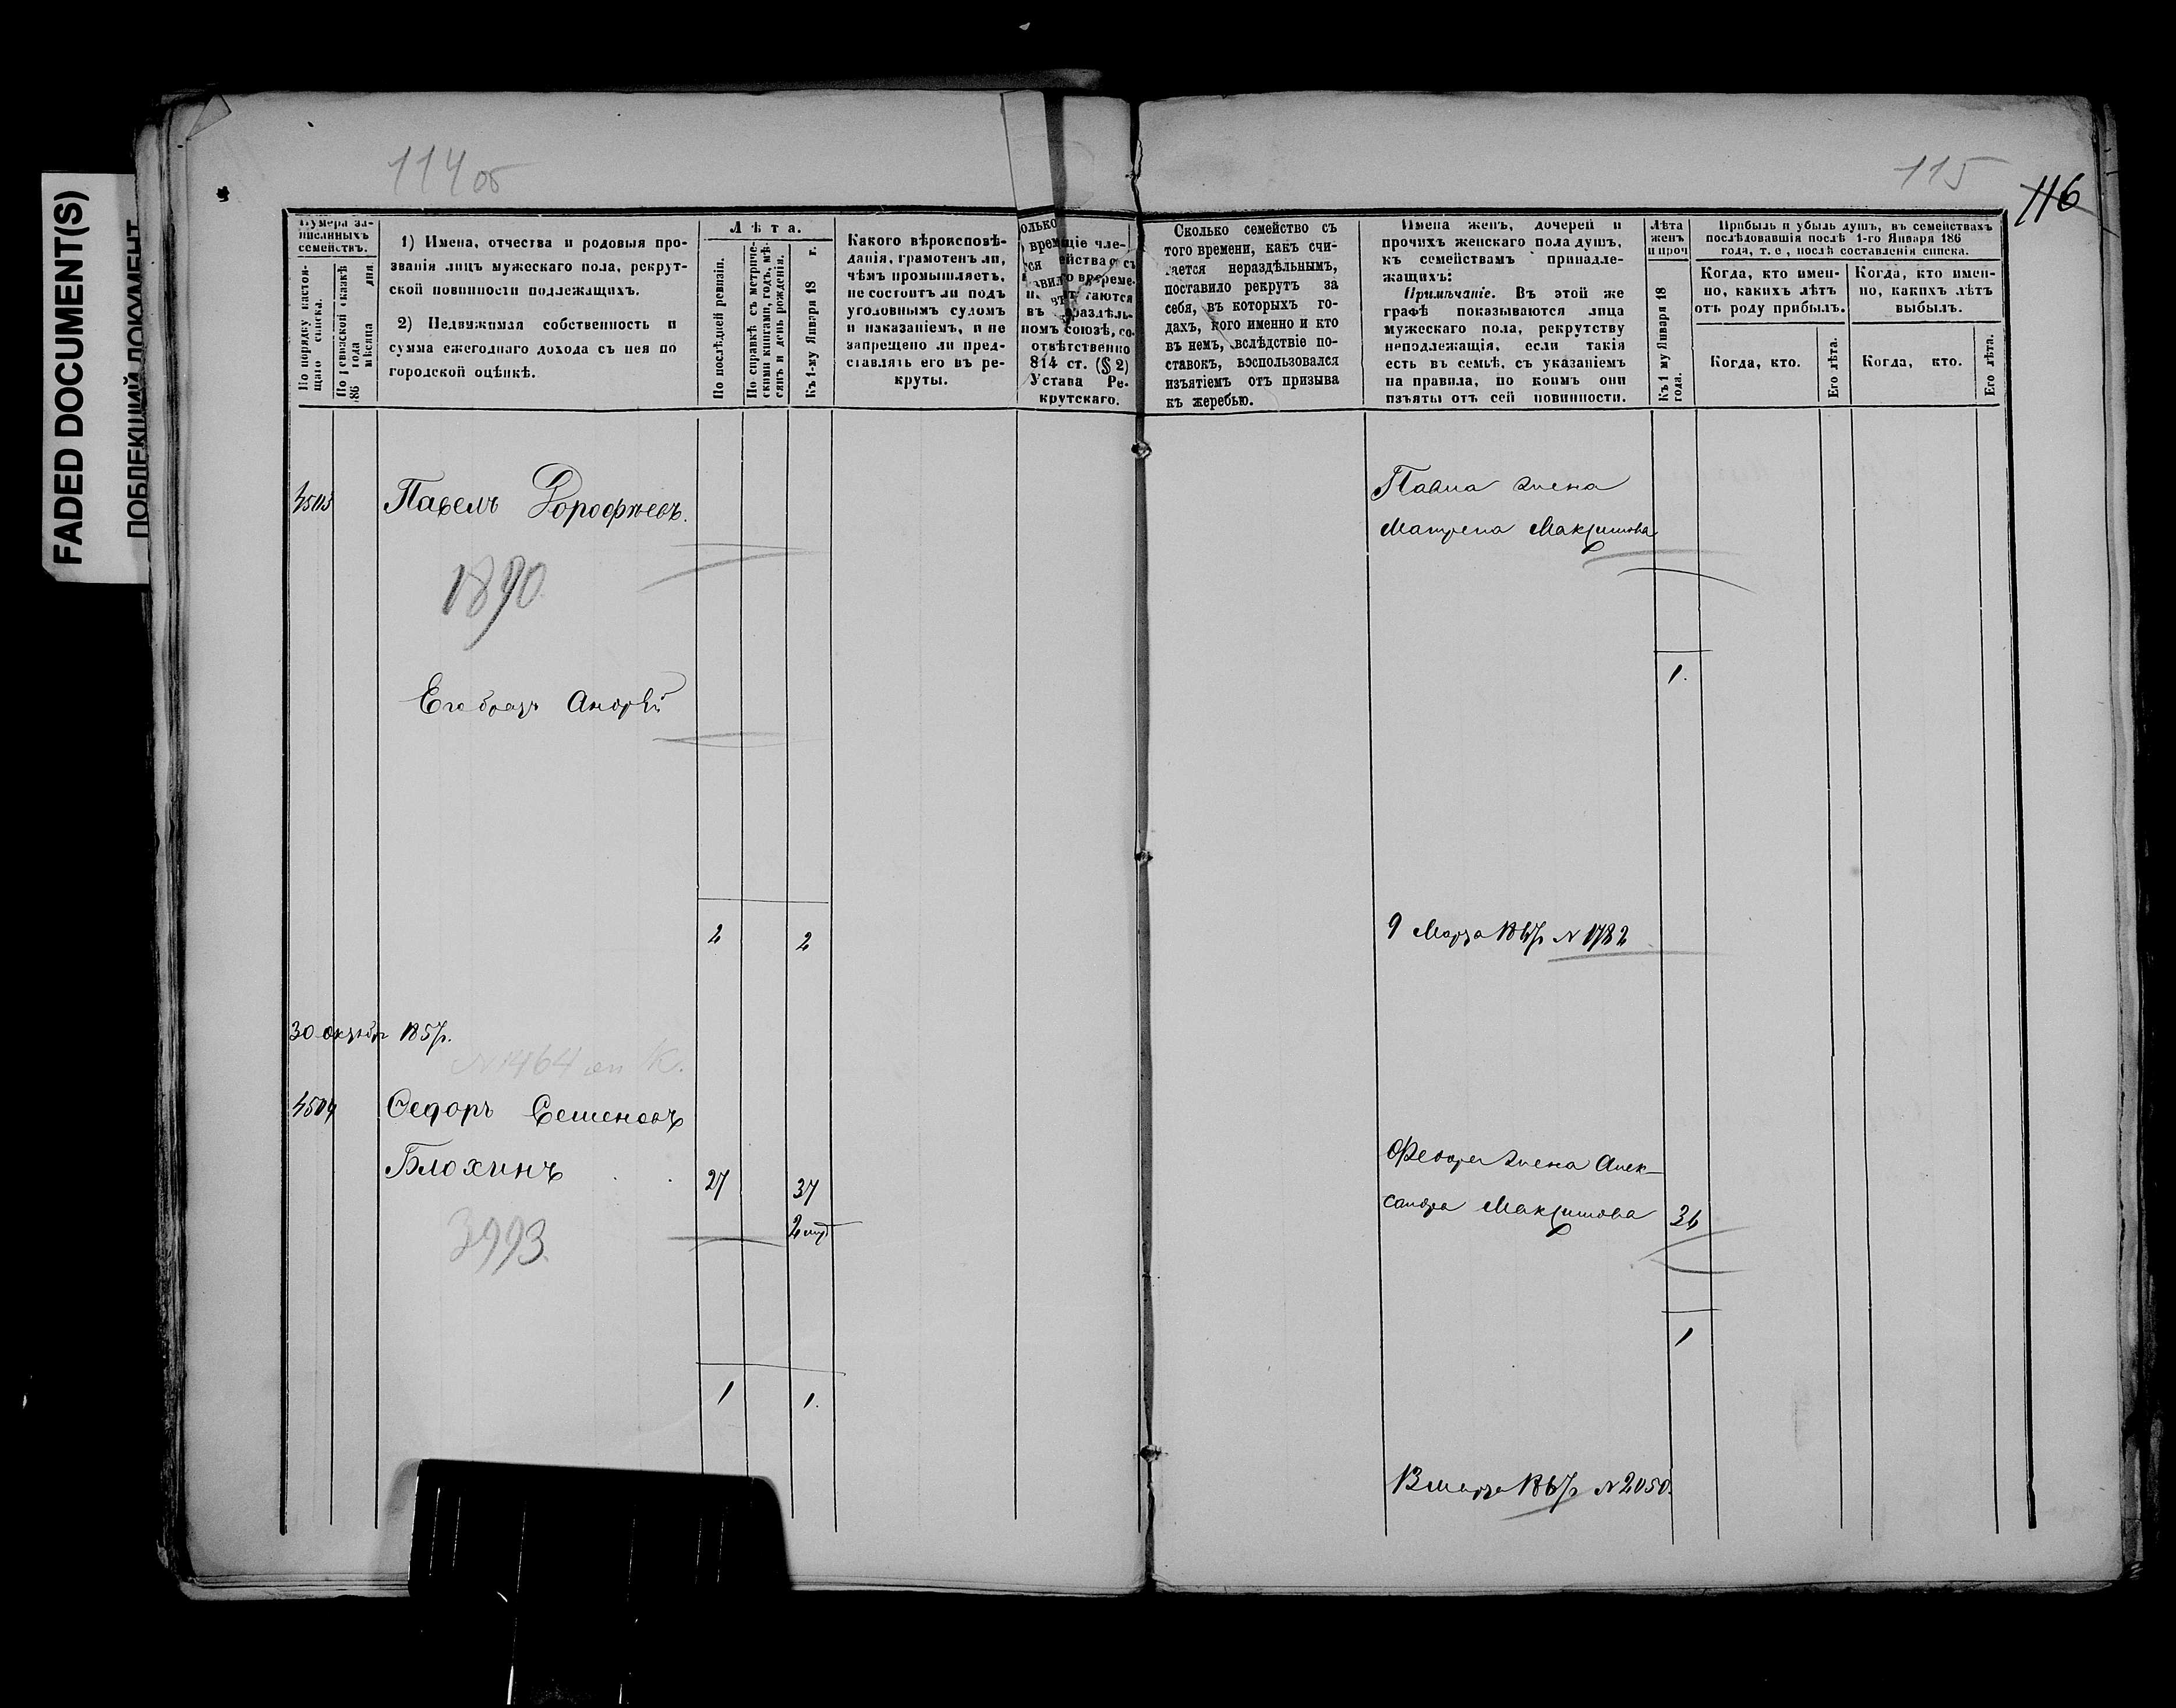 FADED DOCUMENT(S)
ПОБЛЕКШИЙ ДОКУМЕНТ
114 об
115
116
Нумера за-
писанныхъ
семействъ.
По порядку настоя-
щаго списка.
По ревизской сказкѣ
186 года
мѣсяца дня
1) Имена, отчества и родовыя про-
званія лицъ мужескаго пола, рекрут-
ской повинности подлежащихъ.
2) Недвижимая собственность и
сумма ежегоднаго дохода съ нея по
городской оцѣнкѣ.
Лѣта.
По послѣдней ревизіи.
По справкѣ съ метриче-
скими книгами, годъ, мѣ-
сяцъ и день рожденія.
Къ 1-му Января 18 г.
Какого вѣроисповѣ-
данія, грамотенъ ли,
чѣмъ промышляетъ,
не состоитъ ли подъ
уголовнымъ судомъ
и наказаніемъ, и не
запрещено ли пред-
ставлять его въ ре-
круты.
номъ союзѣ, со-
отвѣтственно
814 ст. (§ 2)
Устава Ре-
крутскаго.
Сколько семейство съ
того времени, какъ счи-
тается нераздѣльнымъ,
поставило рекрутъ за
себя, въ которыхъ го-
дахъ, кого именно и кто
въ немъ, вслѣдствіе по-
ставокъ, воспользовался
изъятіемъ отъ призыва
къ жеребью.
Имена женъ, дочерей и
прочихъ женскаго пола душъ,
къ семействамъ принадле-
жащихъ:
Примѣчаніе. Въ этой же
графѣ показываются лица
мужескаго пола, рекрутству
неподлежащія, если такія
есть въ семьѣ, съ указаніемъ
на правила, по коимъ они
изъяты отъ сей повинности.
Лѣта
женъ
и проч
Къ 1 му Января 18
года.
Прибыль и убыль душъ, въ семействахъ
послѣдовавшія послѣ 1-го Января 186
года, т. е., послѣ составленія списка.
Когда, кто имен-
но, какихъ лѣтъ
отъ роду прибылъ.
Когда, кто имен-
но, какихъ лѣтъ
выбылъ.
Когда, кто.
Его лѣта.
Когда, кто.
Его лѣта.
Павелъ Дорофѣевъ.
Павла жена
Матрена Максимова
1890
1.
Его братъ Андрей
2 2
9 Марта 1867г. N 1782
30 октября 1857г.
N 1464
4504 Федоръ Семеновъ
Блохинъ 27 37
Федора жена Алек-
сандра Максимова 36
3993
1
1 1.
13 марта 1867г. N 2050.